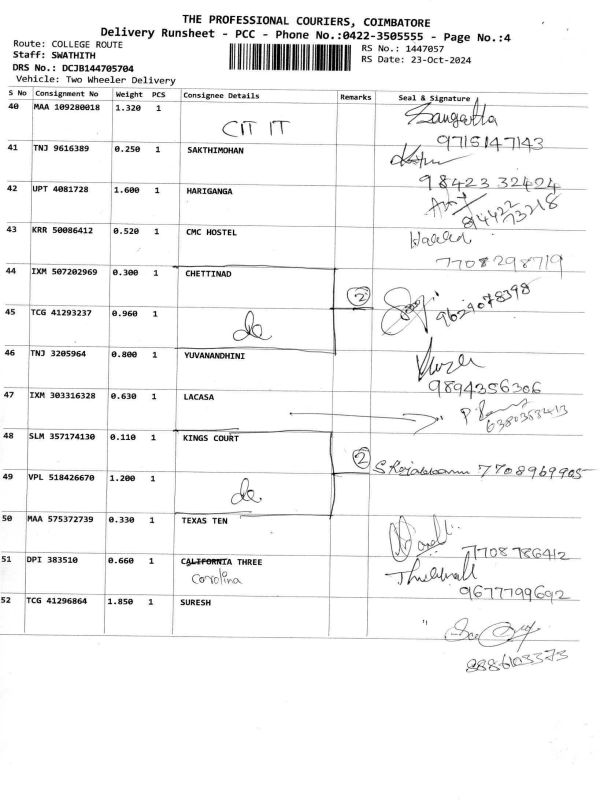 THE PROFESSIONAL COURIERS, COIMBATORE
Delivery Runsheet - PCC - Phone No.:0422-3505555 - Page No.:4
Route: COLLEGE ROUTE
RS No.: 1447057
Staff: SWATHITH
RS Date: 23-Oct-2024
DRS No.: DCJB144705704
Vehicle: Two Wheeler Delivery
S No Consignment No Weight PCS Consignee Details Remarks Seal & Signature
40 MAA 109280018 1.320 1
CIT IT
Sangeetha
9715147143
41 TNJ 9616389 0.250 1 SAKTHIMOHAN
98423 32424
42 UPT 4081728 1.600 1 HARIGANGA
814422 73218
43 KRR 50086412 0.520 1 CMC HOSTEL
7708298719
44 IXM 507202969 0.300 1 CHETTINAD
2
9629078398
45 TCG 41293237 0.960 1
do
46 TNJ 3205964 0.800 1 YUVANANDHINI
9894356306
47 IXM 303316328 0.630 1 LACASA
6380353413
48 SLM 357174130 0.110 1 KINGS COURT
2
7708969905
49 VPL 518426670 1.200 1
do
50 MAA 575372739 0.330 1 TEXAS TEN
7708786412
51 DPI 383510 0.660 1 CALIFORNIA THREE
Carolina
9677799692
52 TCG 41296864 1.850 1 SURESH
8886103373